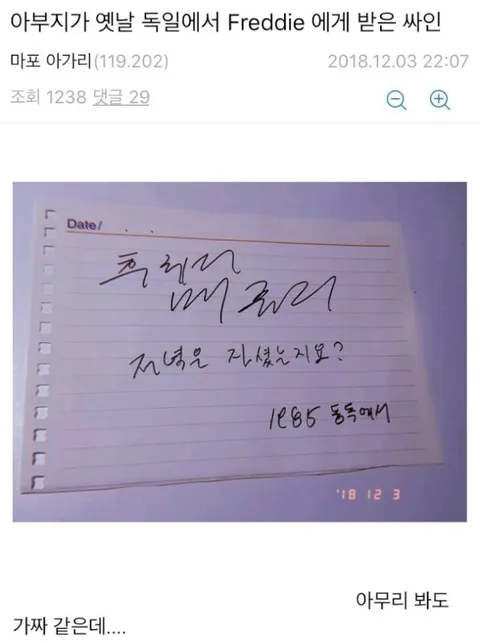 아부지가 옛날 독일에서 Freddie 에게 받은 싸인
마포 아가리(119.202) 2018.12.03 22:07
조회 1238 댓글 29
Date/ . .
후레디
머큐리
저녁은 자셨는지요?
1985 동독에서
'18 12 3
아무리 봐도
가짜 같은데....